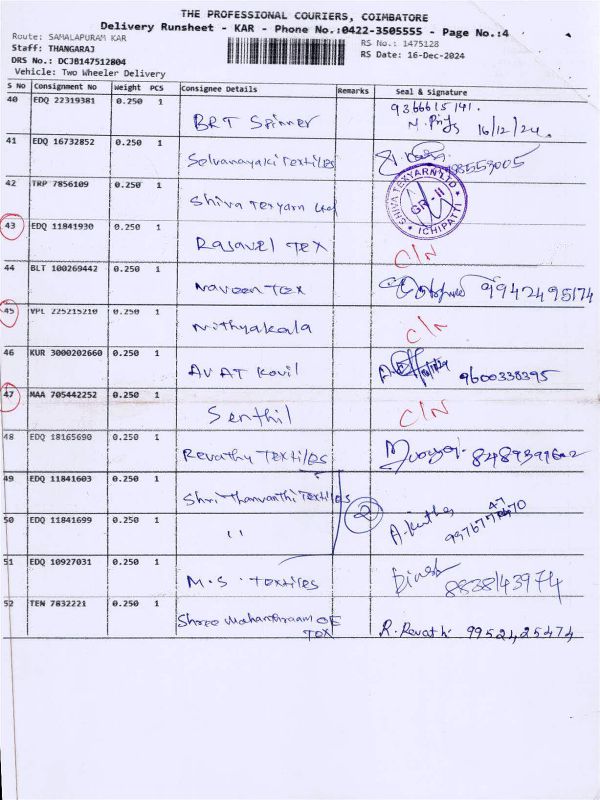 THE PROFESSIONAL COURIERS, COIMBATORE
Delivery Runsheet - KAR - Phone No.:0422-3505555 - Page No.:4
Route: SAMALAPURAM KAR
RS No.: 1475128
Staff: THANGARAJ
RS Date: 16-Dec-2024
DRS No.: DCJB147512804
Vehicle: Two Wheeler Delivery
S No Consignment No Weight PCS Consignee Details Remarks Seal & Signature
40 EDQ 22319381 0.250 1 BRT Spinner 9366615141.
16/12/24.
41 EDQ 16732852 0.250 1 Selvanayaki Textiles
42 TRP 7856109 0.250 1 Shiva Texyarn Ltd
SHIVA TEXYARN LTD
GR-II
ICHIPATTI
43 EDQ 11841930 0.250 1 Rajavel Tex C/N
44 BLT 100269442 0.250 1 Naveen Tex 9942495174
45 VPL 225215210 0.250 1 Nithyakala C/N
46 KUR 3000202660 0.250 1 AVAT Kovil 9600338395
47 MAA 705442252 0.250 1 Senthil C/N
48 EDQ 18165690 0.250 1 Revathy Textiles
49 EDQ 11841603 0.250 1 Shri Thanvanthi Textiles
2
50 EDQ 11841699 0.250 1 "
51 EDQ 10927031 0.250 1 M.S. Textiles Dinesh 8838143974
52 TEN 7832221 0.250 1 Shree Mahanthraam OE
Tex R. Revathi 9952425474